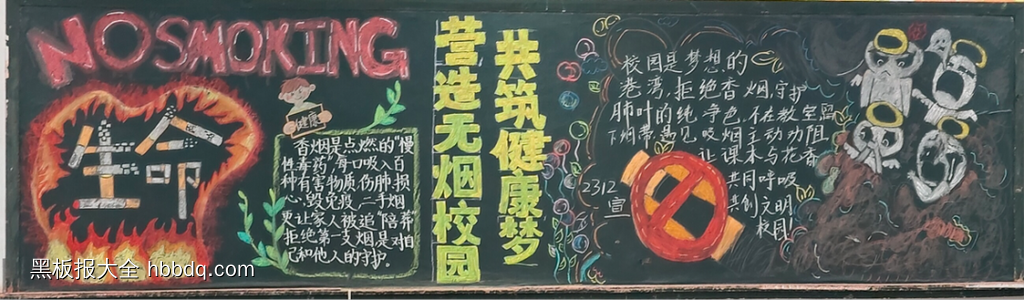 NO SMOKING
生命
健康
香烟是点燃的"慢
性毒药"每口吸入百
种有害物质,伤肺损
心,毁免疫,二手烟
更让家人被迫"陪葬
拒绝第一支烟是对自
己和他人的守护.
营造无烟校园
共筑健康梦
校园是梦想的
港湾,拒绝香烟,守护
肺叶的纯净色,在教室留
下烟蒂,遇见吸烟主动劝阻
让课本与花香
共同呼吸
共创文明
校园
2312
宣
黑板报大全 hbbdq.com